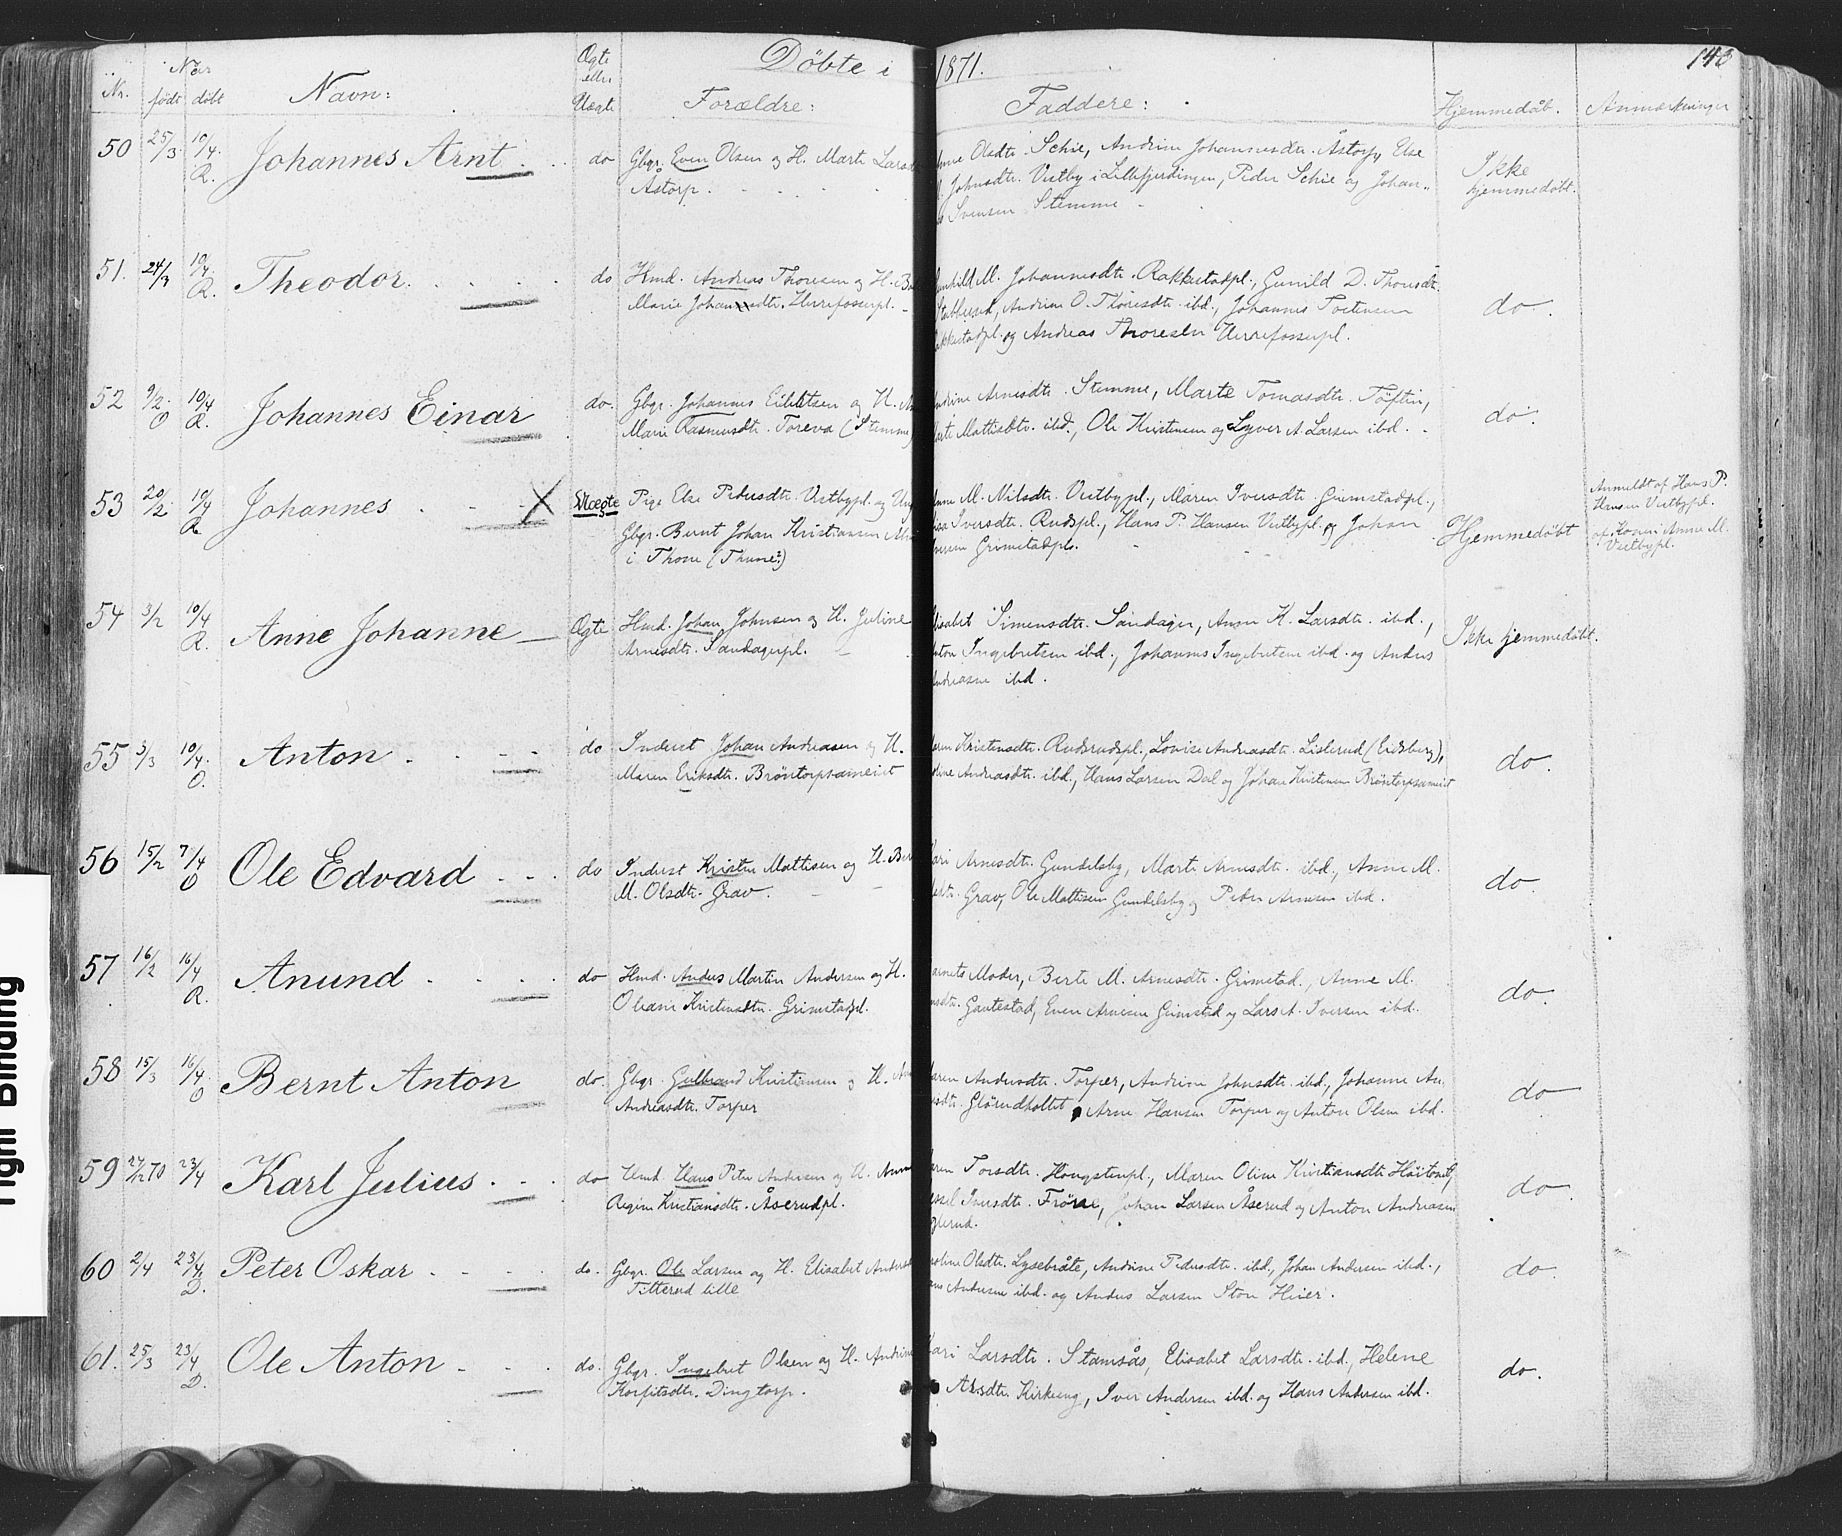 Døbte i 1871. 143
Nr. Naar født døbt Navn: Ægte eller Uægte Forældre: Faddere: Hjemmedøb. Anmærkninger
50 25/3 10/4 R. Johannes Arnt do Gbgr. Even Olsen og H. Marte Larsd
Åstorp.
Olsdtr. Schie, Andrine Johannesdtr. Åstorp, Else
Johnsdtr. Vestby i Lillefjerdingen, Peder Schie og Johan-
Svensen Stemme
Ikke
hjemmedøbt.
51. 24/3 10/4. R. Theodor. do Hmd. Andreas Thoresen og H.
Marie Johansdtr. Herrefosserpl.
M. Johannesdtr. Rakkestadpl., Gunild D. Thoresdtr.
Andrine O. Thoresdtr. ibd., Johannes Tostensen
og Andreas Thoresen Herrefosserpl.
do.
52 9/2. O 10/4 R. Johannes Einar do. Gbgr. Johannes Eilertsen og H.
Marie Rasmusdtr. Foreva (Stemme)
Arnesdtr. Stemme, Marte Tomasdtr. Tøftin,
Mattisdtr. ibd., Ole Kristensen og Syver A. Larsen ibd.
do.
53 20/2. 10/4 R Johannes X Uægte Pige Else Pedersdtr. Vestbypl. og
Gbgr. Bernt Johan Kristiansen
i Thone (Thune?)
M. Nilsdtr. Vestbypl., Maren Iversdtr. Grimstadpl.,
Iversdtr. Rudspl., Hans P. Hansen Vestbypl. og Johan
Grimstadpl.
Hjemmedøbt
Anmeldt af Hans P.
Hansen Vestbypl.
af Konen Anne M.
Vestbypl.
54 3/2 10/4 R. Anne Johanne Ægte Hmd. Johan Johnsen og H. Juline
Arnesdtr. Sandagerpl.
Simensdtr. Sandager, Anne K. Larsdtr. ibd.,
Ingebretsen ibd., Johannes Ingebretsen ibd. og Anders
ibd.
Ikke hjemmedøbt.
55 3/3 10/4. O. Anton do Inderst Johan Andreasen og H.
Maren Eriksdtr. Brøntorpsameiet
Kristensdtr. Rudsrudspl., Lovise Andreasdtr. Lislerud (Eidsberg),
Andreasdtr. ibd., Hans Larsen Dal og Johan Kristensen Brøntorpsameiet
do.
56 15/2 7/4 O Ole Edvard do Inderst Kristen Mattisen og H. Ber
M. Olsdtr. Grav.
Arnesdtr. Gundelsby, Marte Arnesdtr. ibd., Anne M.
Grav, Ole Mattisen Gundelsby og Peder Arnesen ibd.
do.
57 16/2 16/4 R. Anund do Hmd. Anders Martin Andersen og H.
Oleane Kristensdtr. Grimstadpl.
Moder, Berte M. Arnesdtr. Grimstad, Anne M.
Gautestad, Even Arnesen Grimstad og Lars A. Iversen ibd.
do.
58 15/3 16/4 O Bernt Anton do. Gbgr. Gulbrand Kristensen og H.
Andreasdtr. Torper
Andersdtr. Torper, Andrine Johnsdtr. ibd., Johanne An.
Glørudholtet, Arne Hansen Torper og Anton Olsen ibd.
do
59 27/12 70 23/4 Karl Julius do Hmd. Hans Peter Andersen og H. Anne
Regine Kristiansdtr. Åserudpl.
Torsdtr. Haugstenpl., Maren Oline Kristiansdtr.
Iversdtr. Frøne, Johan Larsen Åserud og Anton Andreasen
do.
60 2/4 23/4 D. Peter Oskar do. Gbgr. Ole Larsen og H. Elisabet Andersd
Titterud lille
Olsdtr. Lysebråte, Andrine Pedersdtr. ibd., Johan Andersen ibd.,
Andersen ibd. og Anders Larsen Ston Hier.
do.
61. 25/3 23/4 D. Ole Anton do. Gbgr. Ingebret Olsen og H. Andrine
Korfitsdtr. Dingtorp.
Kari Larsdtr. Stamsås, Elisabet Larsdtr. ibd., Helene
Kirkeng, Iver Andersen ibd. og Hans Andersen ibd.
do.
Tight Binding